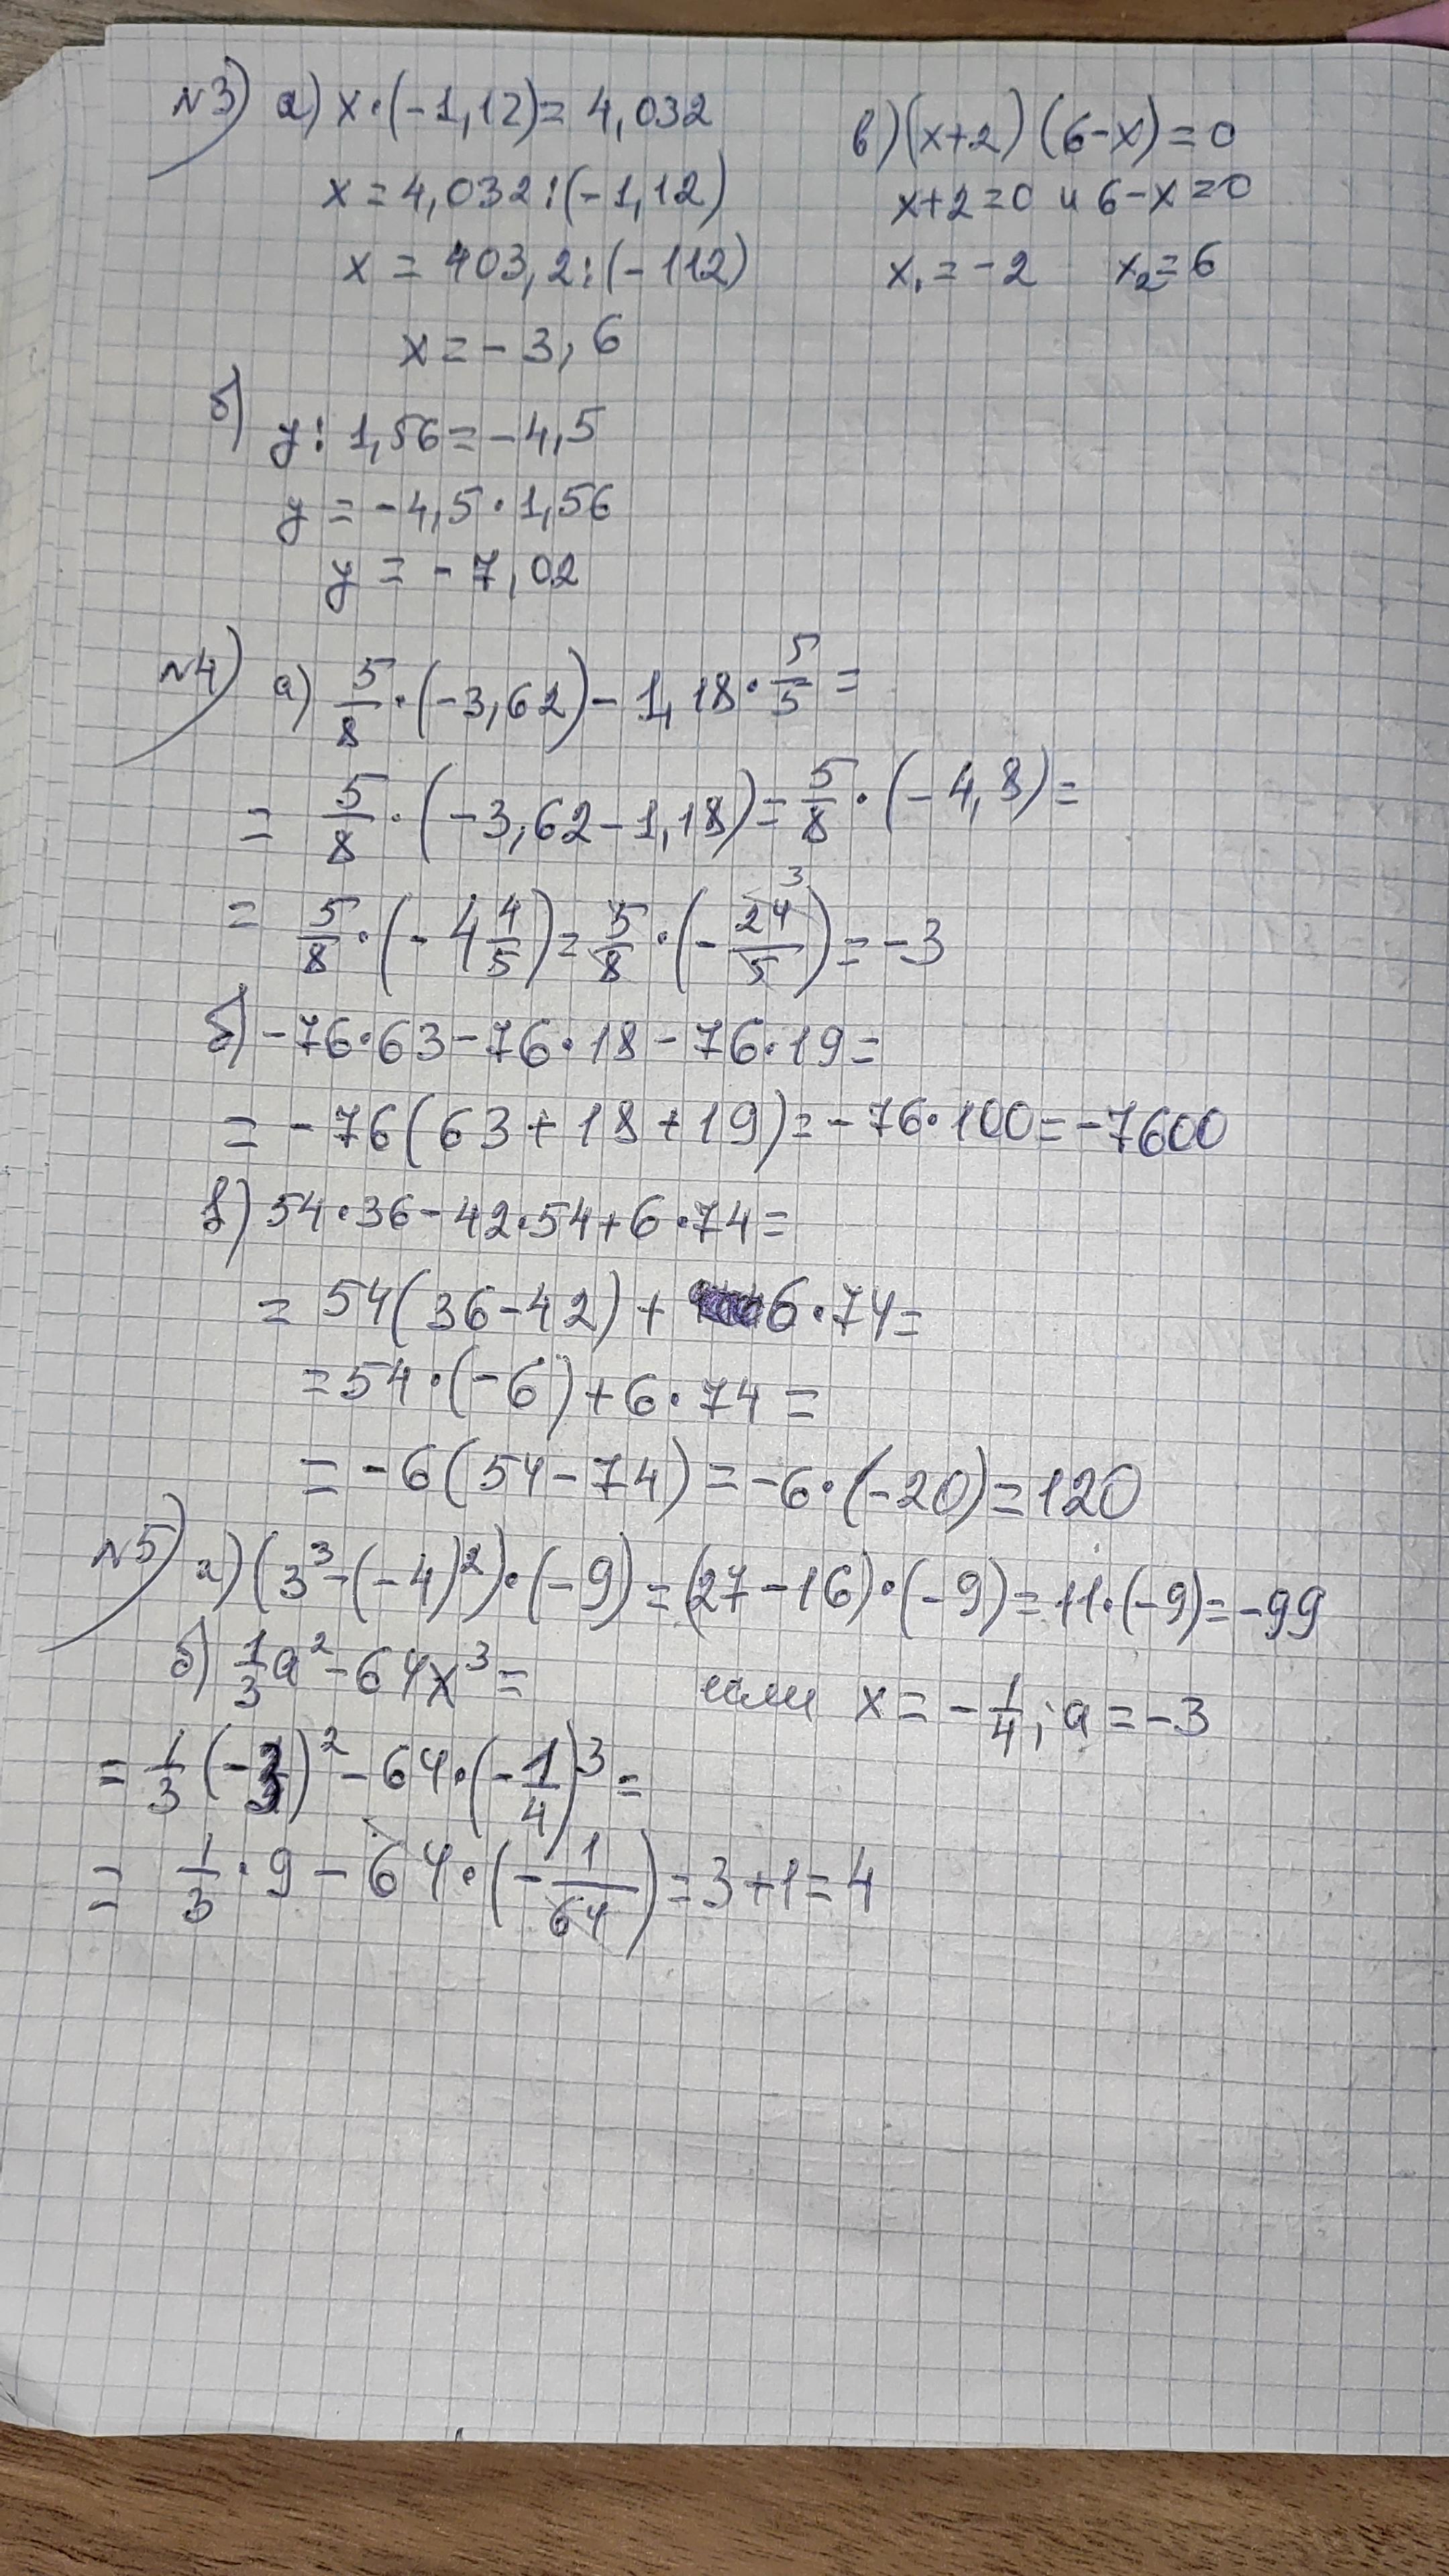 №3) а) x·(-1,12)= 4,032
x = 4,032:(-1,12)
x = 403,2:(-112)
x = -3,6
в) (x+2) (6-x) = 0
x+2=0 и 6-x=0
x₁ = -2 x₂ = 6
б) y : 1,56 = -4,5
y = -4,5 · 1,56
y = -7,02
№4) а) 5/8 · (-3,62) - 1,18 · 5/5 =
= 5/8 · (-3,62-1,18) = 5/8 · (-4,8) =
= 5/8 · (-4 4/5) = 5/8 · (-24/5) = -3
3
б) -76·63-76·18-76·19=
= -76(63+18+19)=-76·100=-7600
в) 54·36-42·54+6·74=
= 54(36-42)+ 6·74=
=54·(-6)+6·74=
= -6(54-74)=-6·(-20)=120
№5) а) (3³-(-4)²)·(-9)=(27-16)·(-9)=11·(-9)=-99
б) 1/3a²-64x³= если x = -1/4; a = -3
= 1/3(-3)²-64·(-1/4)³=
= 1/3·9-64·(-1/64)=3+1=4